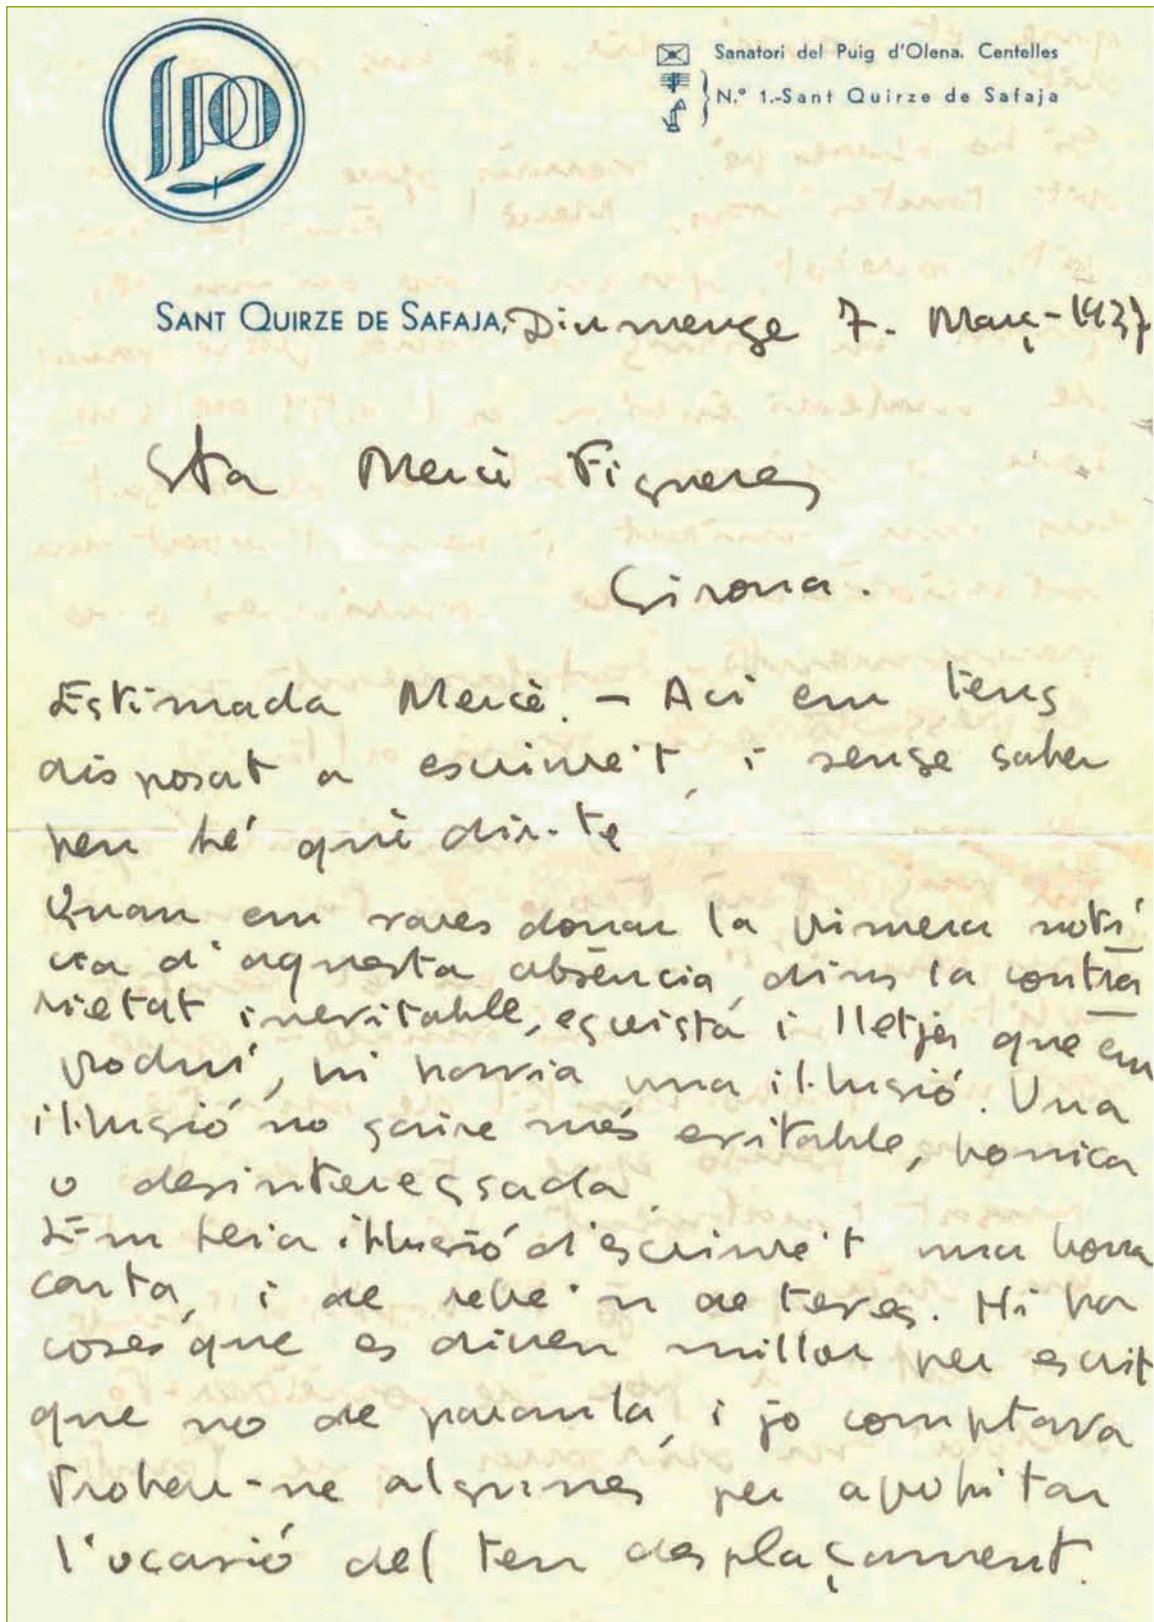 SPO
Sanatori del Puig d'Olena. Centelles
N.º 1.-Sant Quirze de Safaja
SANT QUIRZE DE SAFAJA, Diumenge 7 - Març - 1937
Sta Mercè Figueres
Girona.
Estimada Mercè. - Ací em tens
disposat a escriure't, i sense saber
ben bé què dir-te
Quan em vares donar la primera notí
cia d'aquesta absència, dins la contra
rietat inevitable, egoista i lletja que em
produí, hi havia una il·lusió. Una
il·lusió no gaire més evitable, bonica
o desinteressada.
Em feia il·lusió d'escriure't una bona
carta, i de rebe'n de teves. Hi ha
coses que es diuen millor per escrit
que no de paraula, i jo comptava
trobar-ne algunes per aprofitar
l'ocasió del teu desplaçament.